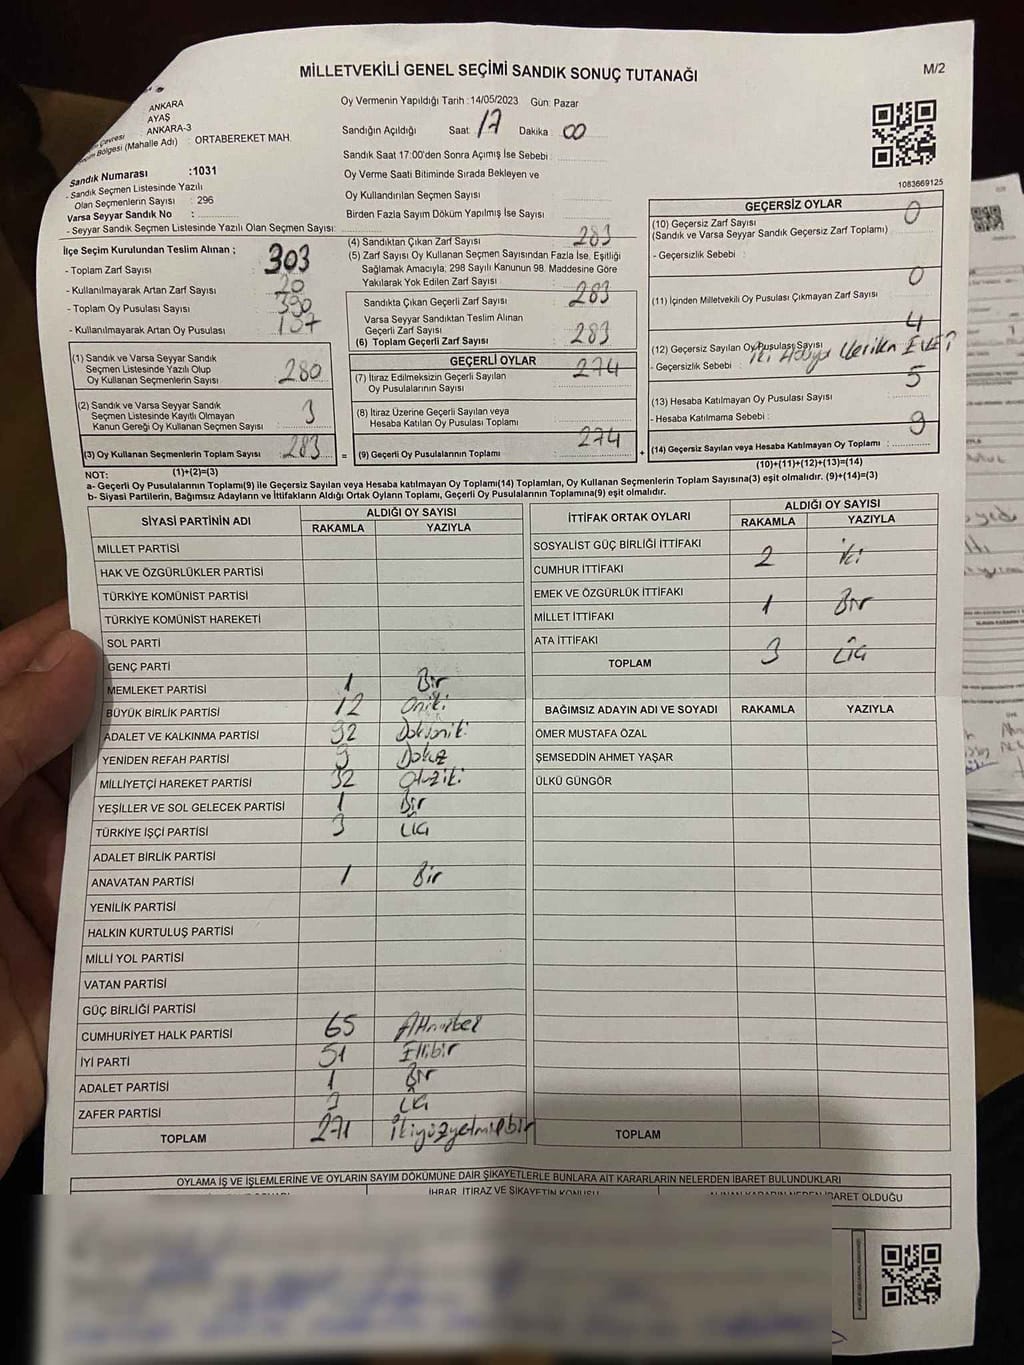 MİLLETVEKİLİ GENEL SEÇİMİ SANDIK SONUÇ TUTANAĞI
M/2
ANKARA
AYAŞ
ANKARA-3
Bölgesi (Mahalle Adı) : ORTABEREKET MAH.
Sandık Numarası :1031
- Sandık Seçmen Listesinde Yazılı
Olan Seçmenlerin Sayısı : 296
Varsa Seyyar Sandık No :
- Seyyar Sandık Seçmen Listesinde Yazılı Olan Seçmen Sayısı:
Oy Vermenin Yapıldığı Tarih : 14/05/2023 Gün: Pazar
Sandığın Açıldığı Saat 17 Dakika 00
Sandık Saat 17:00'den Sonra Açımış İse Sebebi :
Oy Verme Saati Bitiminde Sırada Bekleyen ve
Oy Kullandırılan Seçmen Sayısı
Birden Fazla Sayım Döküm Yapılmış İse Sayısı
1083669125
İlçe Seçim Kurulundan Teslim Alınan ;
- Toplam Zarf Sayısı 303
- Kullanılmayarak Artan Zarf Sayısı 20
- Toplam Oy Pusulası Sayısı 390
- Kullanılmayarak Artan Oy Pusulası 107
(1) Sandık ve Varsa Seyyar Sandık
Seçmen Listesinde Yazılı Olup
Oy Kullanan Seçmenlerin Sayısı 280
(2) Sandık ve Varsa Seyyar Sandık
Seçmen Listesinde Kayıtlı Olmayan
Kanun Gereği Oy Kullanan Seçmen Sayısı 3
(3) Oy Kullanan Seçmenlerin Toplam Sayısı 283
=
(4) Sandıktan Çıkan Zarf Sayısı 283
(5) Zarf Sayısı Oy Kullanan Seçmen Sayısından Fazla İse, Eşitliği
Sağlamak Amacıyla; 298 Sayılı Kanunun 98. Maddesine Göre
Yakılarak Yok Edilen Zarf Sayısı
Sandıkta Çıkan Geçerli Zarf Sayısı 283
Varsa Seyyar Sandıktan Teslim Alınan
Geçerli Zarf Sayısı
(6) Toplam Geçerli Zarf Sayısı 283
GEÇERLİ OYLAR
(7) İtiraz Edilmeksizin Geçerli Sayılan
Oy Pusulalarının Sayısı 274
(8) İtiraz Üzerine Geçerli Sayılan veya
Hesaba Katılan Oy Pusulası Toplamı
(9) Geçerli Oy Pusulalarının Toplamı 274
+
GEÇERSİZ OYLAR
(10) Geçersiz Zarf Sayısı 0
(Sandık ve Varsa Seyyar Sandık Geçersiz Zarf Toplamı)
- Geçersizlik Sebebi :
(11) İçinden Milletvekili Oy Pusulası Çıkmayan Zarf Sayısı 0
(12) Geçersiz Sayılan Oy Pusulası Sayısı 4
- Geçersizlik Sebebi : Verilen
(13) Hesaba Katılmayan Oy Pusulası Sayısı 5
- Hesaba Katılmama Sebebi :
(14) Geçersiz Sayılan veya Hesaba Katılmayan Oy Toplamı : 9
NOT: (1)+(2)=(3)
(10)+(11)+(12)+(13)=(14)
a- Geçerli Oy Pusulalarının Toplamı(9) ile Geçersiz Sayılan veya Hesaba katılmayan Oy Toplamı(14) Toplamları, Oy Kullanan Seçmenlerin Toplam Sayısına(3) eşit olmalıdır. (9)+(14)=(3)
b- Siyasi Partilerin, Bağımsız Adayların ve İttifakların Aldığı Ortak Oyların Toplamı, Geçerli Oy Pusulalarının Toplamına(9) eşit olmalıdır.
SİYASİ PARTİNİN ADI
ALDIĞI OY SAYISI
RAKAMLA YAZIYLA
MİLLET PARTİSİ
HAK VE ÖZGÜRLÜKLER PARTİSİ
TÜRKİYE KOMÜNİST PARTİSİ
TÜRKİYE KOMÜNİST HAREKETİ
SOL PARTİ
GENÇ PARTİ
MEMLEKET PARTİSİ 1 Bir
BÜYÜK BİRLİK PARTİSİ 12 Oniki
ADALET VE KALKINMA PARTİSİ 92 Doksaniki
YENİDEN REFAH PARTİSİ 9 Dokuz
MİLLİYETÇİ HAREKET PARTİSİ 32 Otuziki
YEŞİLLER VE SOL GELECEK PARTİSİ 1 Bir
TÜRKİYE İŞÇİ PARTİSİ 3 Üç
ADALET BİRLİK PARTİSİ
ANAVATAN PARTİSİ 1 Bir
YENİLİK PARTİSİ
HALKIN KURTULUŞ PARTİSİ
MİLLİ YOL PARTİSİ
VATAN PARTİSİ
GÜÇ BİRLİĞİ PARTİSİ
CUMHURİYET HALK PARTİSİ 65 Altmışbeş
İYİ PARTİ 51 Ellibir
ADALET PARTİSİ 1 Bir
ZAFER PARTİSİ 3 Üç
TOPLAM 271 İkiyüzyetmişbir
İTTİFAK ORTAK OYLARI
ALDIĞI OY SAYISI
RAKAMLA YAZIYLA
SOSYALİST GÜÇ BİRLİĞİ İTTİFAKI
CUMHUR İTTİFAKI 2 İki
EMEK VE ÖZGÜRLÜK İTTİFAKI
MİLLET İTTİFAKI 1 Bir
ATA İTTİFAKI
TOPLAM 3 Üç
BAĞIMSIZ ADAYIN ADI VE SOYADI RAKAMLA YAZIYLA
ÖMER MUSTAFA ÖZAL
ŞEMSEDDİN AHMET YAŞAR
ÜLKÜ GÜNGÖR
TOPLAM
OYLAMA İŞ VE İŞLEMLERİNE VE OYLARIN SAYIM DÖKÜMÜNE DAİR ŞİKAYETLERLE BUNLARA AİT KARARLARIN NELERDEN İBARET BULUNDUKLARI
İHBAR, İTİRAZ VE ŞİKAYETİN KONUSU
ALINAN KARARIN NEDEN İBARET OLDUĞU